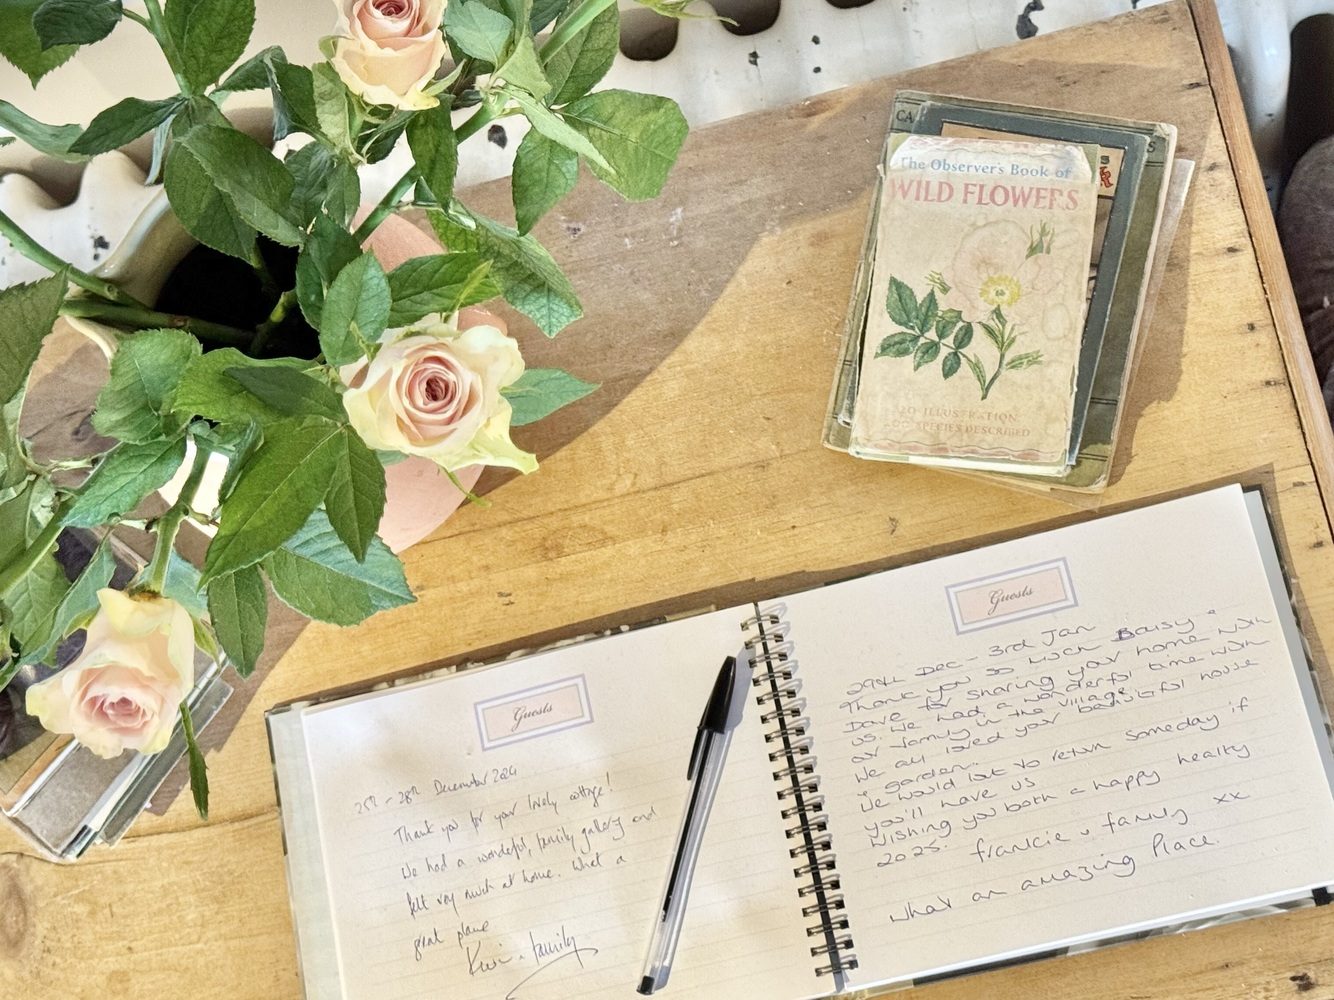 CA
S
The Observer's Book of
WILD FLOWERS
ILLUSTRATION
SPECIES DESCRIBED
Guests
25th - 28th December 2024
Thank you for your lovely cottage!
We had a wonderful, family gallery and
felt very much at home. What a
great place
& family
Guests
29th Dec - 3rd Jan
Thank you so much Daisy &
Dave for sharing your home with
us. We had a wonderful time with
our family in the village.
We all loved your beautiful house
& garden.
We would love to return someday if
you'll have us
Wishing you both a happy healthy
2025. Frankie & family xx
What an amazing place.